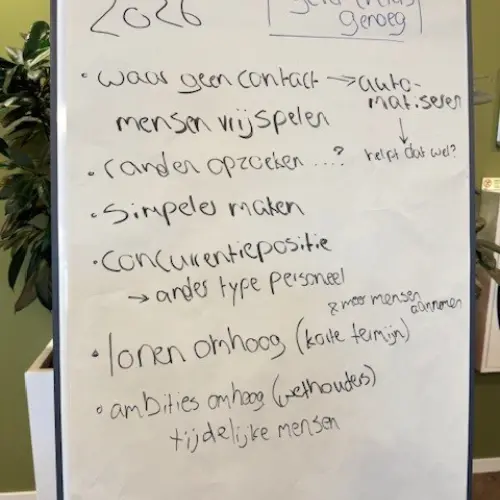 2026
genoeg
• waar geen contact → auto-
matiseren
mensen vrijspelen
↓
helpt dat wel?
• randen opzoeken ....?
• Simpeler maken
• Concurrentiepositie
→ ander type personeel
& meer mensen
aannemen
• lonen omhoog (korte termijn)
• ambities omhoog (wethouders)
tijdelijke mensen